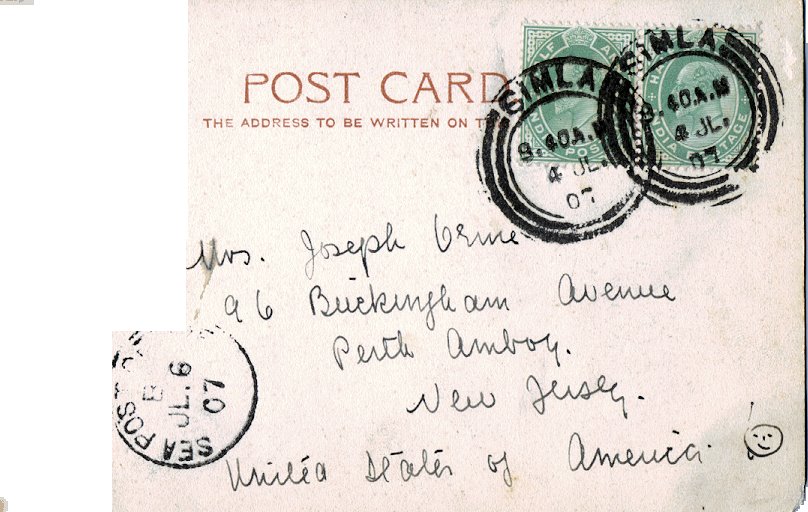 POST CARD
THE ADDRESS TO BE WRITTEN ON
HALF
INDIA POS
INDIA POSTAGE
SIMLA
9.40 A.M
4 JL.
07
SIMLA
9.40 A.M
4 JL.
07
Mrs. Joseph Orme
96 Buckingham Avenue
Perth Amboy.
New Jersey.
United States of America.
SEA POST
B
JL. 6
07